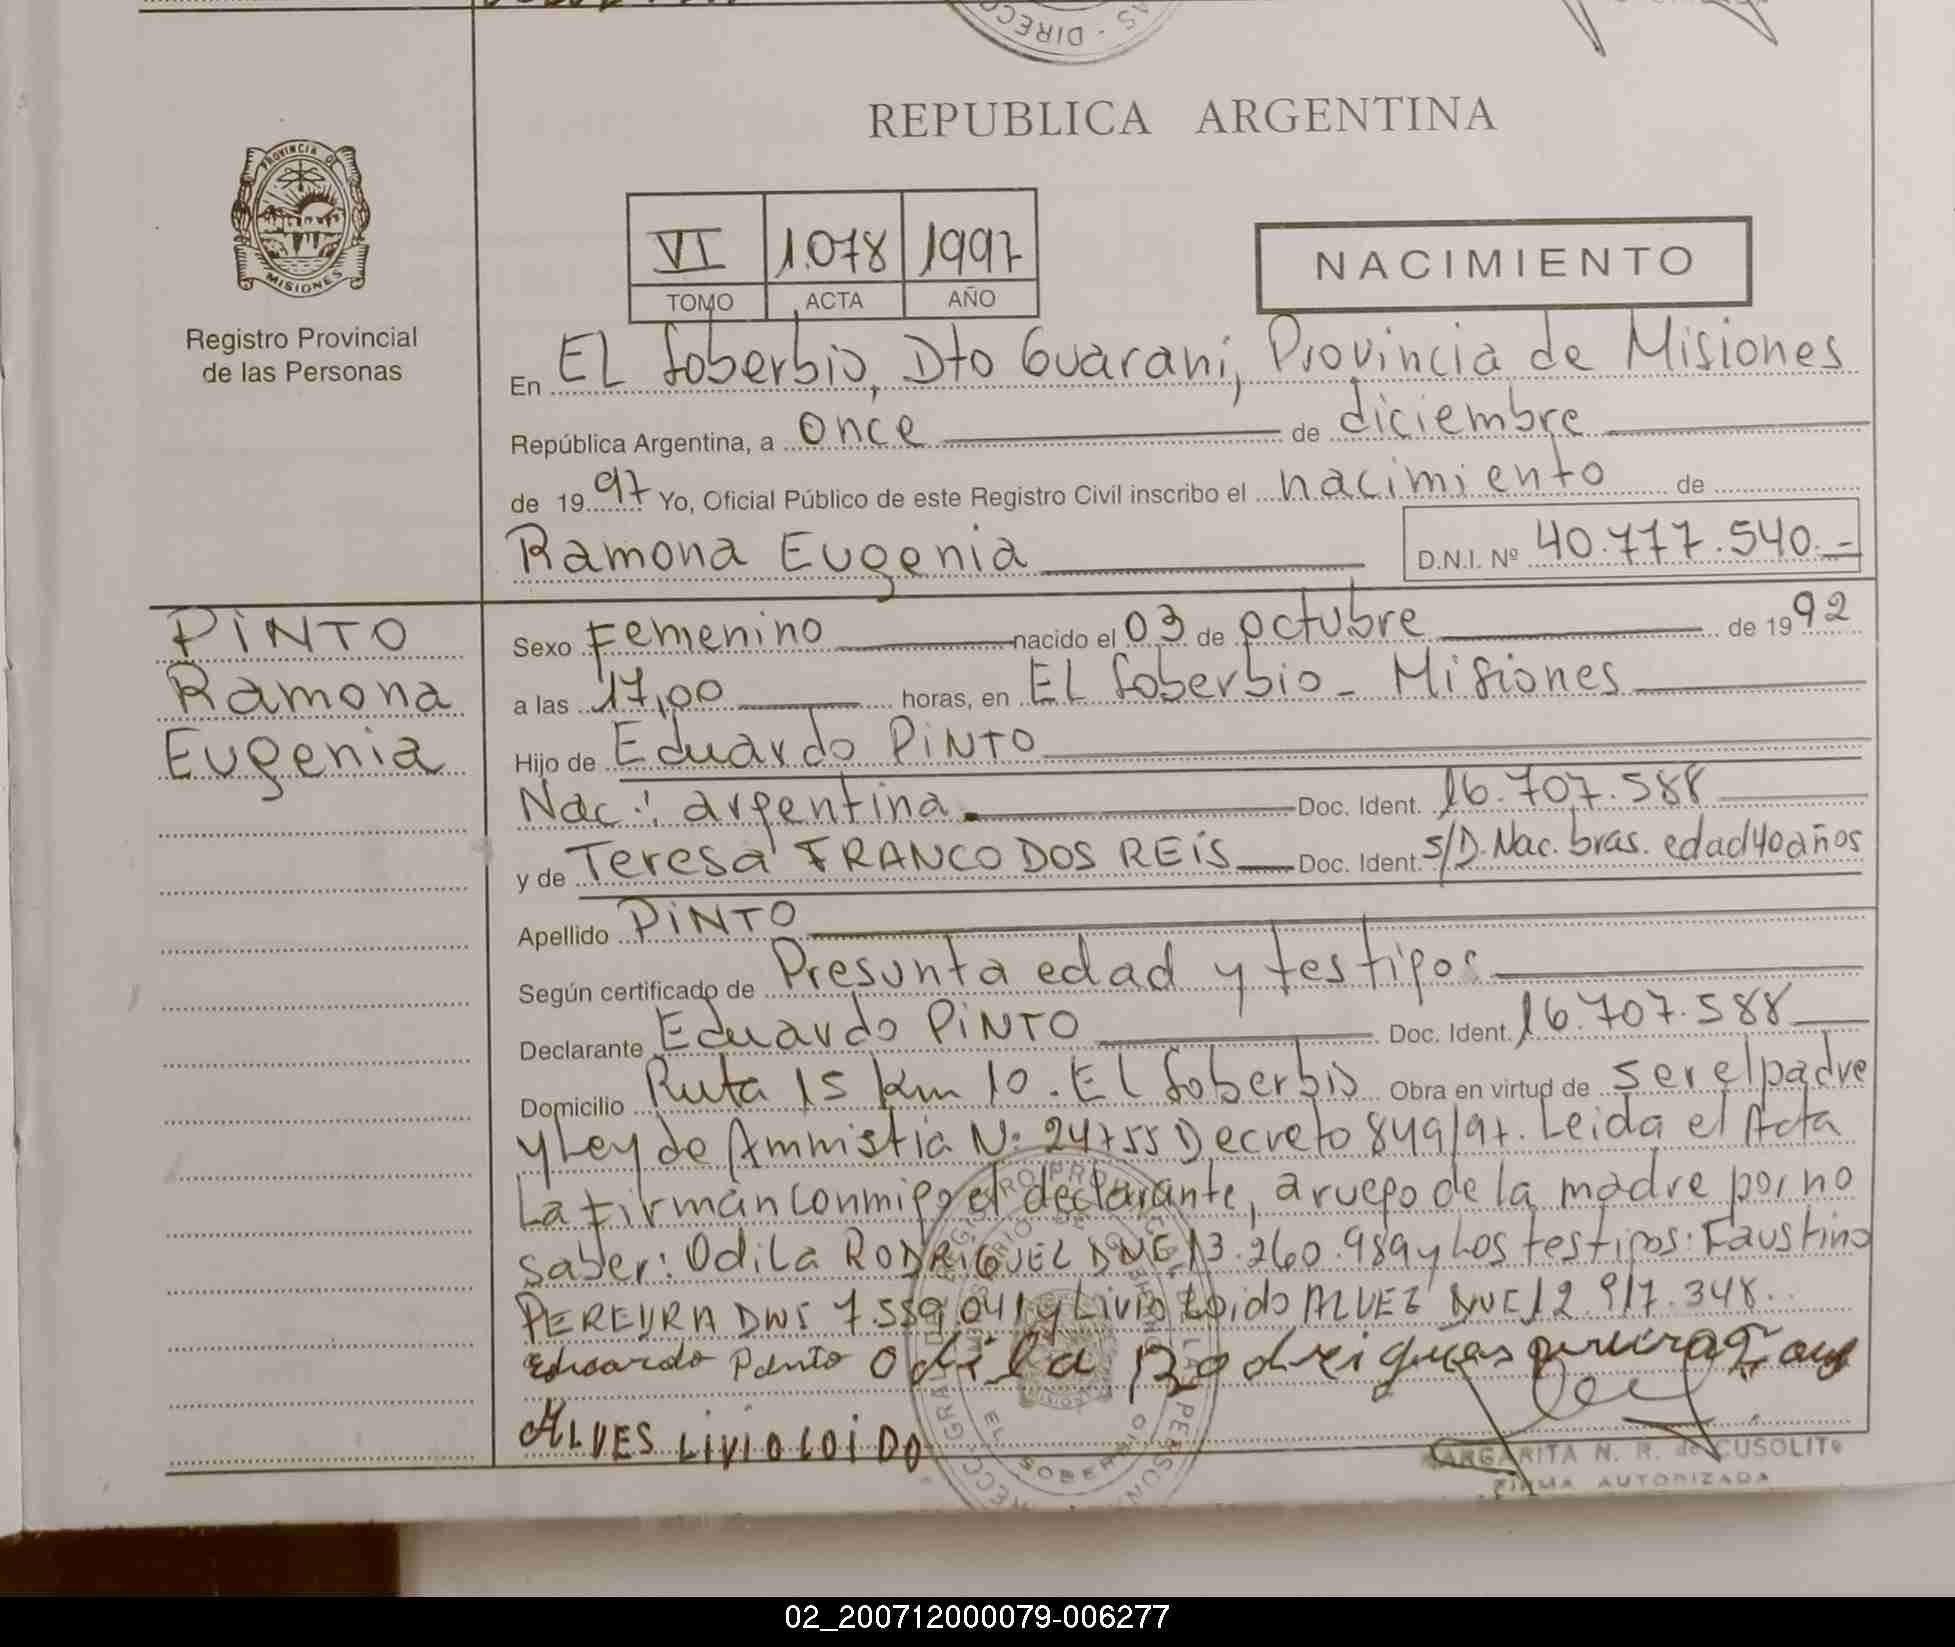 REPUBLICA ARGENTINA
PROVINCIA DE
MISIONES
Registro Provincial
de las Personas
VI 1.078 1997
TOMO ACTA AÑO
NACIMIENTO
En EL Soberbio, Dto Guarani, Provincia de Misiones
República Argentina, a once de diciembre
de 1997 Yo, Oficial Público de este Registro Civil inscribo el nacimiento de
Ramona Eugenia D.N.I. Nº 40.777.540.-
PiNTO
Ramona
Eugenia
Sexo Femenino nacido el 03 de octubre de 1992
a las 17,00 horas, en EL Soberbio - Misiones
Hijo de Eduardo PiNTO
Nac.: argentina. Doc. Ident. 16.707.588
y de Teresa FRANCO DOS REiS Doc. Ident. S/D. Nac. bras. edad 40 años
Apellido PiNTO
Según certificado de Presunta edad y testigos
Declarante Eduardo PiNTO Doc. Ident. 16.707.588
Domicilio Ruta 15 Km 10. EL Soberbio Obra en virtud de ser el padre
y Ley de Ammistia N: 24755 Decreto 849/97. Leida el Acta
La firman conmigo el declarante, a ruego de la madre por no
saber: Odila RODRIGUEZ DNE 13.260.989 y Los testigos: Faustino
PEREYRA DNI 7.559.041 y Livio Loido ALVEZ DNE 12.917.348.
Eduardo Pinto Odila Rodriguês
ALVES LiViO LOiDO
EL SOBERBIO
MARGARITA N. R. de CUSOLITO
FIRMA AUTORIZADA
02_200712000079-006277